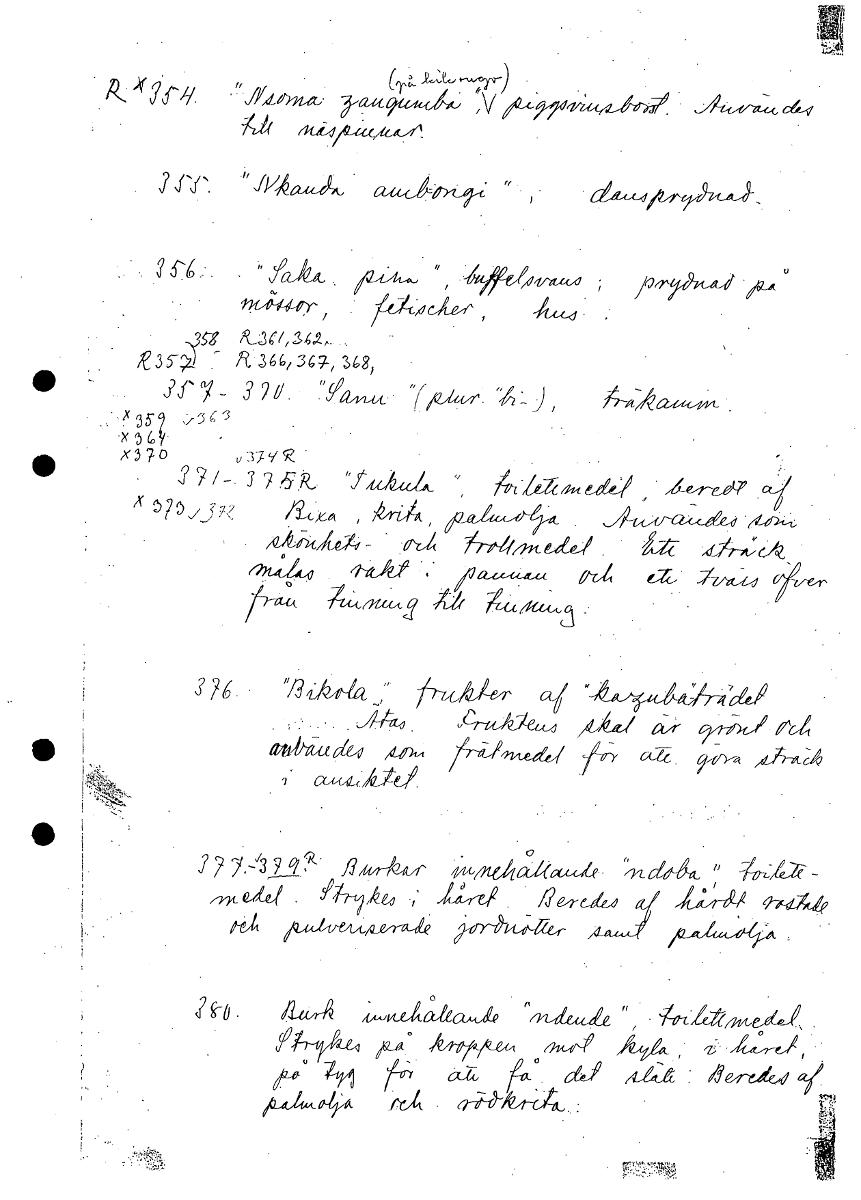 (på
R x 354. "Nsoma zangumba", V piggsvinsborst. Användes
till näspinnar.
355. "Nkanda ambongi", dansprydnad.
356. "Saka pina", buffelsvans; prydnad på
mössor, fetischer, hus.
358 R 361, 362,
R 357 R 366, 367, 368,
357-370. "Sanu" (plur. "bi-), träkamm.
x 359 v 363
x 364
x 370 v 374 R
371-375 R "Tukula", toilettmedel, beredt af
x 373 v 372 Bixa, krita, palmolja. Användes som
skönhets- och trollmedel. Ett sträck
målas rakt i pannan och ett tvärs öfver
från tinning till tinning.
376. "Bikola", frukter af "kazubäträdet
Ätas. Fruktens skal är grönt och
användes som frätmedel för att göra sträck
i ansiktet.
377.-v379. R Burkar innehållande "ndoba", toilett-
medel. Strykes i håret. Beredes af hårdt rostade
och pulveriserade jordnötter samt palmolja.
380. Burk innehållande "ndende", toilettmedel.
Strykes på kroppen mot kyla, i håret,
på tyg för att få det slätt. Beredes af
palmolja och rödkrita.